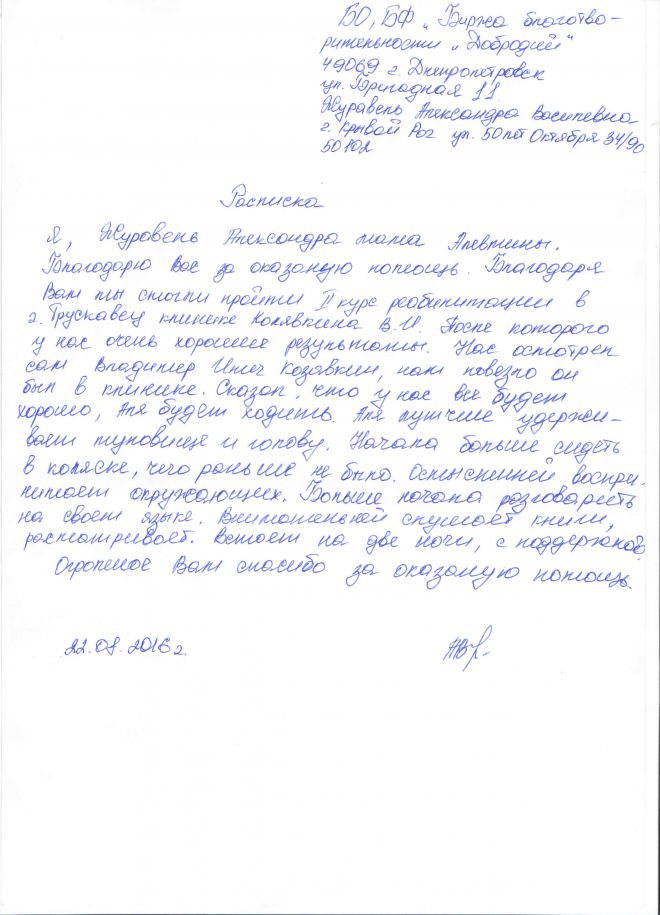 БО, БФ „Биржа благотво-
рительности „Добродий“
49069 г. Днепропетровск
ул. Бригадная 11
Журавель Александра Василевна
г. Кривой Рог ул. 50 лет Октября 34/90
50102
Расписка
Я, Журавель Александра мама Алевтины.
Благодарю Вас за оказаную помощь. Благодаря
Вам мы смогли пройти II курс реабилитации в
г. Трускавец клинике Козявкина В.И. После которого
у нас очень хорошие результаты. Нас осмотрел
сам Владимир Ильич Козявкин, нам повезло он
был в клинике. Сказал, что у нас все будет
хорошо, Аля будет ходить. Аля лучше удержи-
вает туловище и голову. Начала больше сидеть
в коляске, чего раньше не было. Осмысленней воспри-
нимает окружающих. Больше начала разговаривать
на своем языке. Внимательней слушает книги,
рассматривает. Встает на две ноги, с поддержкой.
Огромное Вам спасибо за оказаную помощь.
22.08.2016 г.